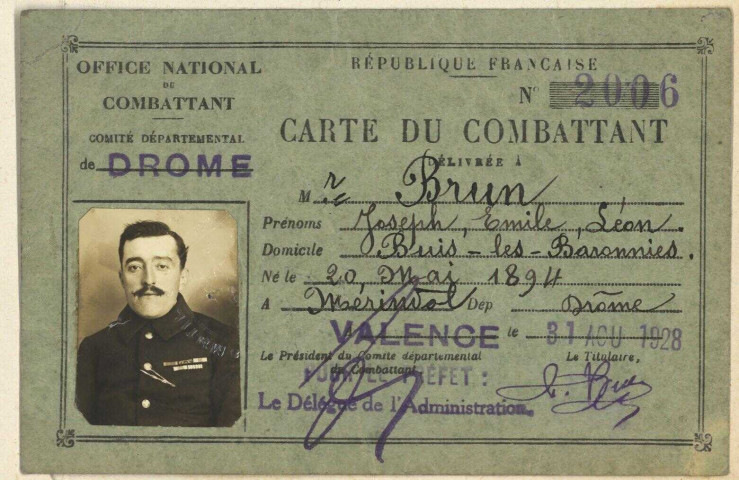 OFFICE NATIONAL
DU
COMBATTANT
COMITÉ DÉPARTEMENTAL
de DROME
RÉPUBLIQUE FRANÇAISE
N° 2006
CARTE DU COMBATTANT
DÉLIVRÉE À
M r Brun
Prénoms Joseph, Emile, Léon.
Domicile Buis-les-Baronnies.
Né le 20 Mai 1894
A Mérindol Dep Drôme
VALENCE le 31 AOU 1928
Le Président du Comité départemental
du Combattant,
Le Titulaire,
POUR LE PRÉFET :
Le Délégué de l'Administration.